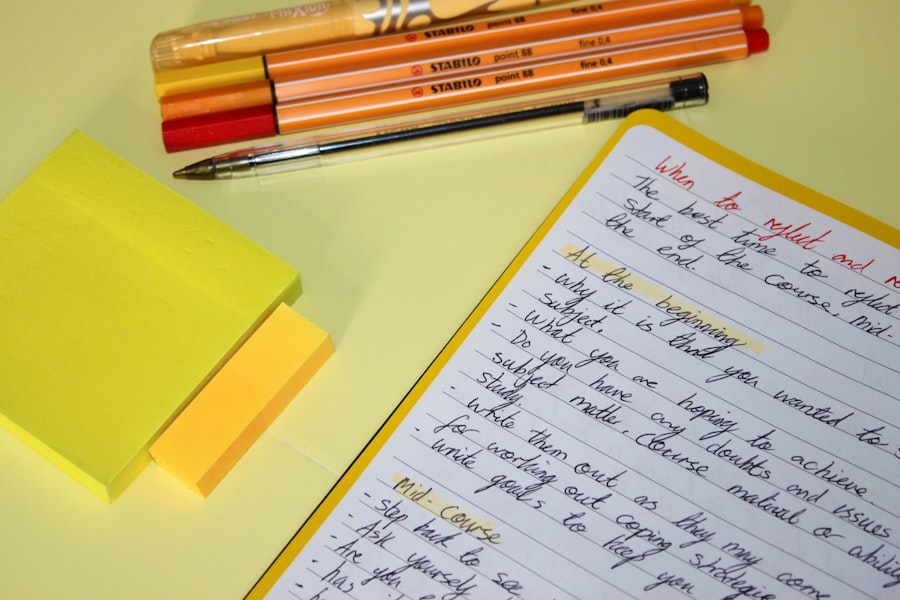 STABILO point 88 fine 0,4
STABILO point 88 fine 0,4
STABILO point 88 fine 0,4
When to reflect and
The best time to reflect
start of the course, mid-
the end.
At the beginning
- Why it is that you wanted to
subject.
- What you are hoping to achieve.
- Do you have any doubts and issues
subject matter, course material or ability
study.
- write them out as they may come
for working out coping strategie
- write goals to keep you
Mid-Course
- Step back to see
- Ask yourself
- Are you
- has